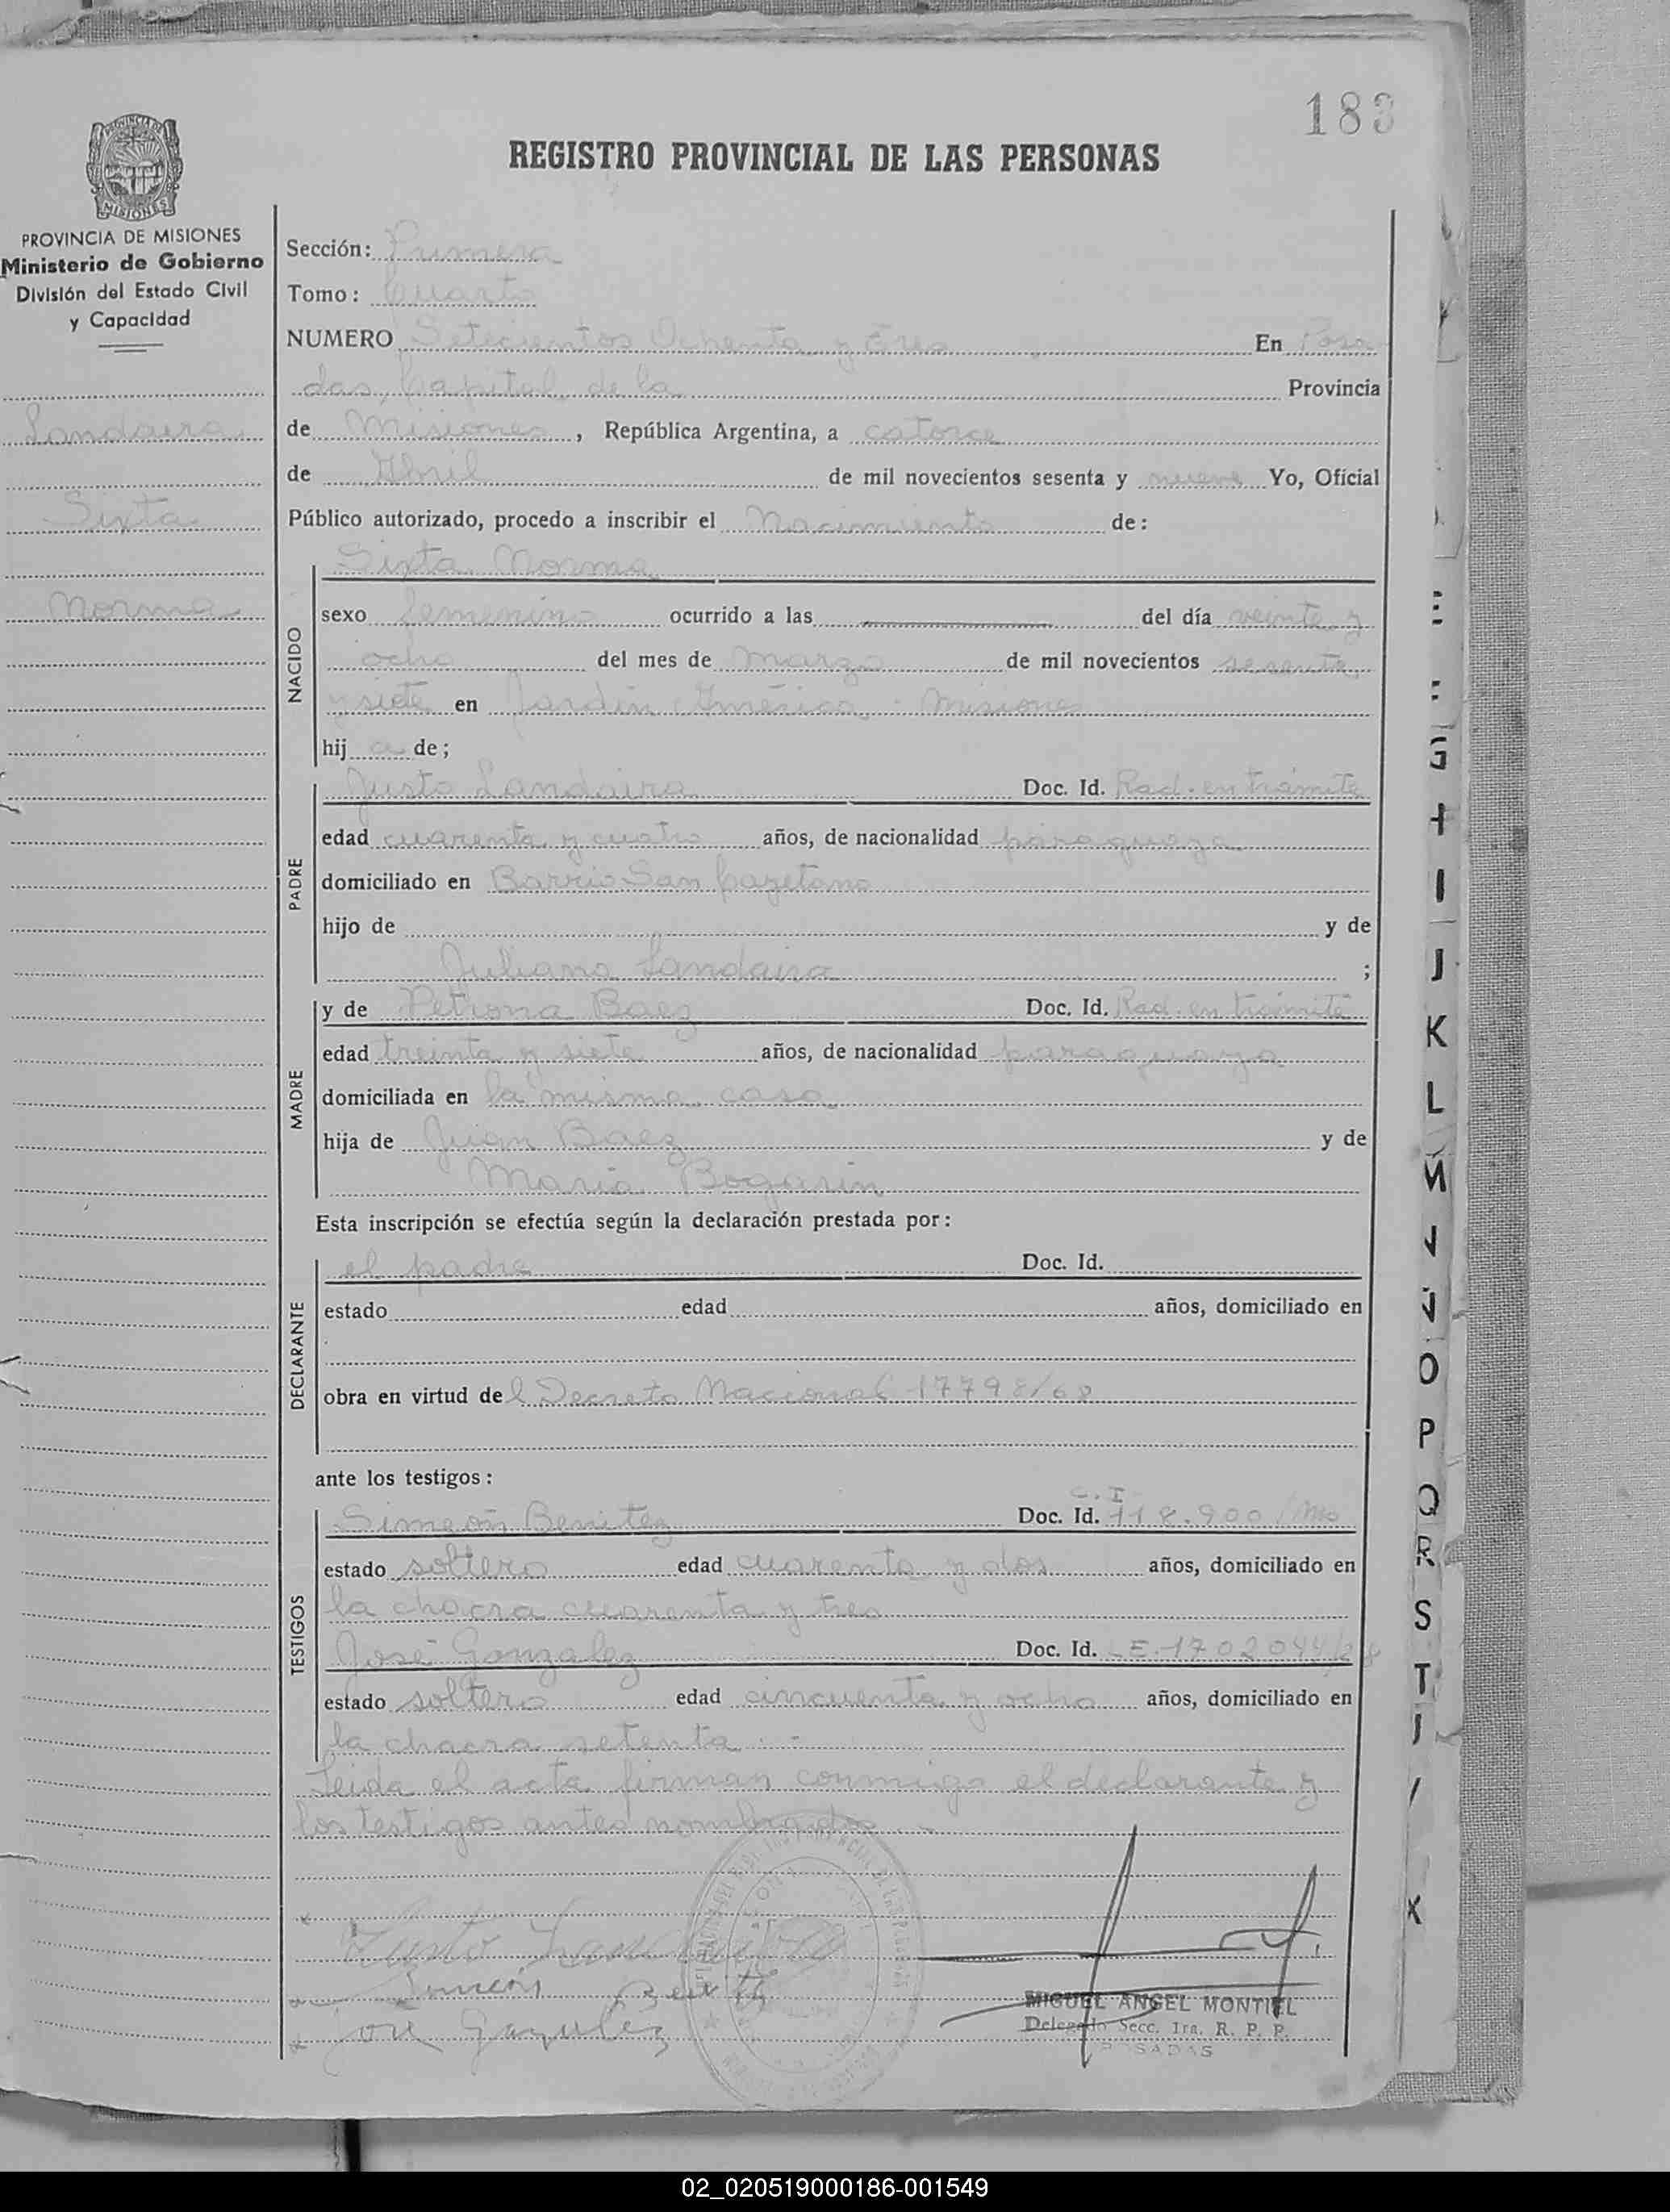 183
REGISTRO PROVINCIAL DE LAS PERSONAS
PROVINCIA DE MISIONES
Ministerio de Gobierno
División del Estado Civil
y Capacidad
Landaira
Sixta
Norma
Sección: Primera
Tomo: Cuarto
NUMERO Setecientos Ochenta y Tres En Posa
das, Capital de la Provincia
de Misiones, República Argentina, a catorce
de Abril de mil novecientos sesenta y nueve Yo, Oficial
Público autorizado, procedo a inscribir el Nacimiento de:
NACIDO
Sixta Norma
sexo femenino ocurrido a las del día veinte y
ocho del mes de Marzo de mil novecientos sesenta
y siete en Jardín América - Misiones
hija de;
PADRE
Justo Landaira Doc. Id. Rad. en trámite
edad cuarenta y cuatro años, de nacionalidad paraguaya
domiciliado en Barrio San Cayetano
hijo de y de
Juliana Landaira ;
MADRE
y de Petrona Baez Doc. Id. Rad. en trámite
edad treinta y siete años, de nacionalidad paraguaya
domiciliada en la misma casa
hija de Juan Baez y de
Maria Bogarin
Esta inscripción se efectúa según la declaración prestada por:
DECLARANTE
el padre Doc. Id.
estado edad años, domiciliado en
obra en virtud del Decreto Nacional 17798/68
ante los testigos:
TESTIGOS
C. I
Simeón Benitez Doc. Id. 118.900/Mnes
estado soltero edad cuarenta y dos años, domiciliado en
la chacra cuarenta y tres
José Gonzalez Doc. Id. L.E. 1702044/28
estado soltero edad cincuenta y ocho años, domiciliado en
la chacra setenta.-
Leida el acta firman conmigo el declarante y
los testigos antes nombrados.-
Justo Landaira
Simeón Benitez
José Gonzalez
MIGUEL ANGEL MONTIEL
Delegado Secc. 1ra. R. P. P.
POSADAS
G
I
J
K
L
M
N
O
P
Q
R
S
T
X
02_020519000186-001549